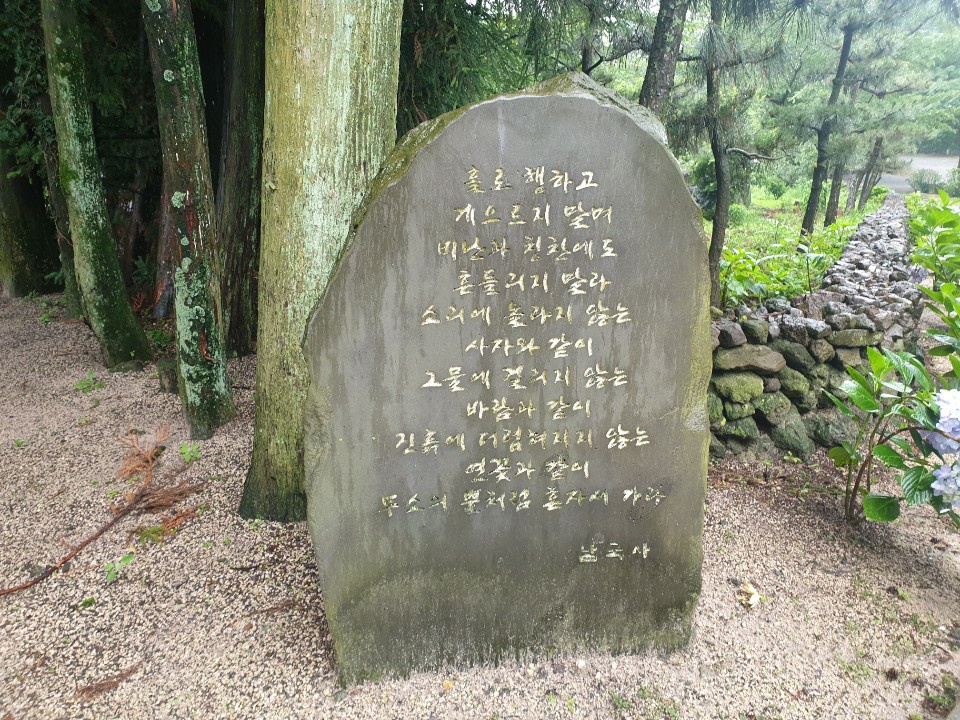 홀로 행하고
게으르지 말며
비난과 칭찬에도
흔들리지 말라
소리에 놀라지 않는
사자와 같이
그물에 걸리지 않는
바람과 같이
진흙에 더럽혀지지 않는
연꽃과 같이
무소의 뿔처럼 혼자서 가라
남국사